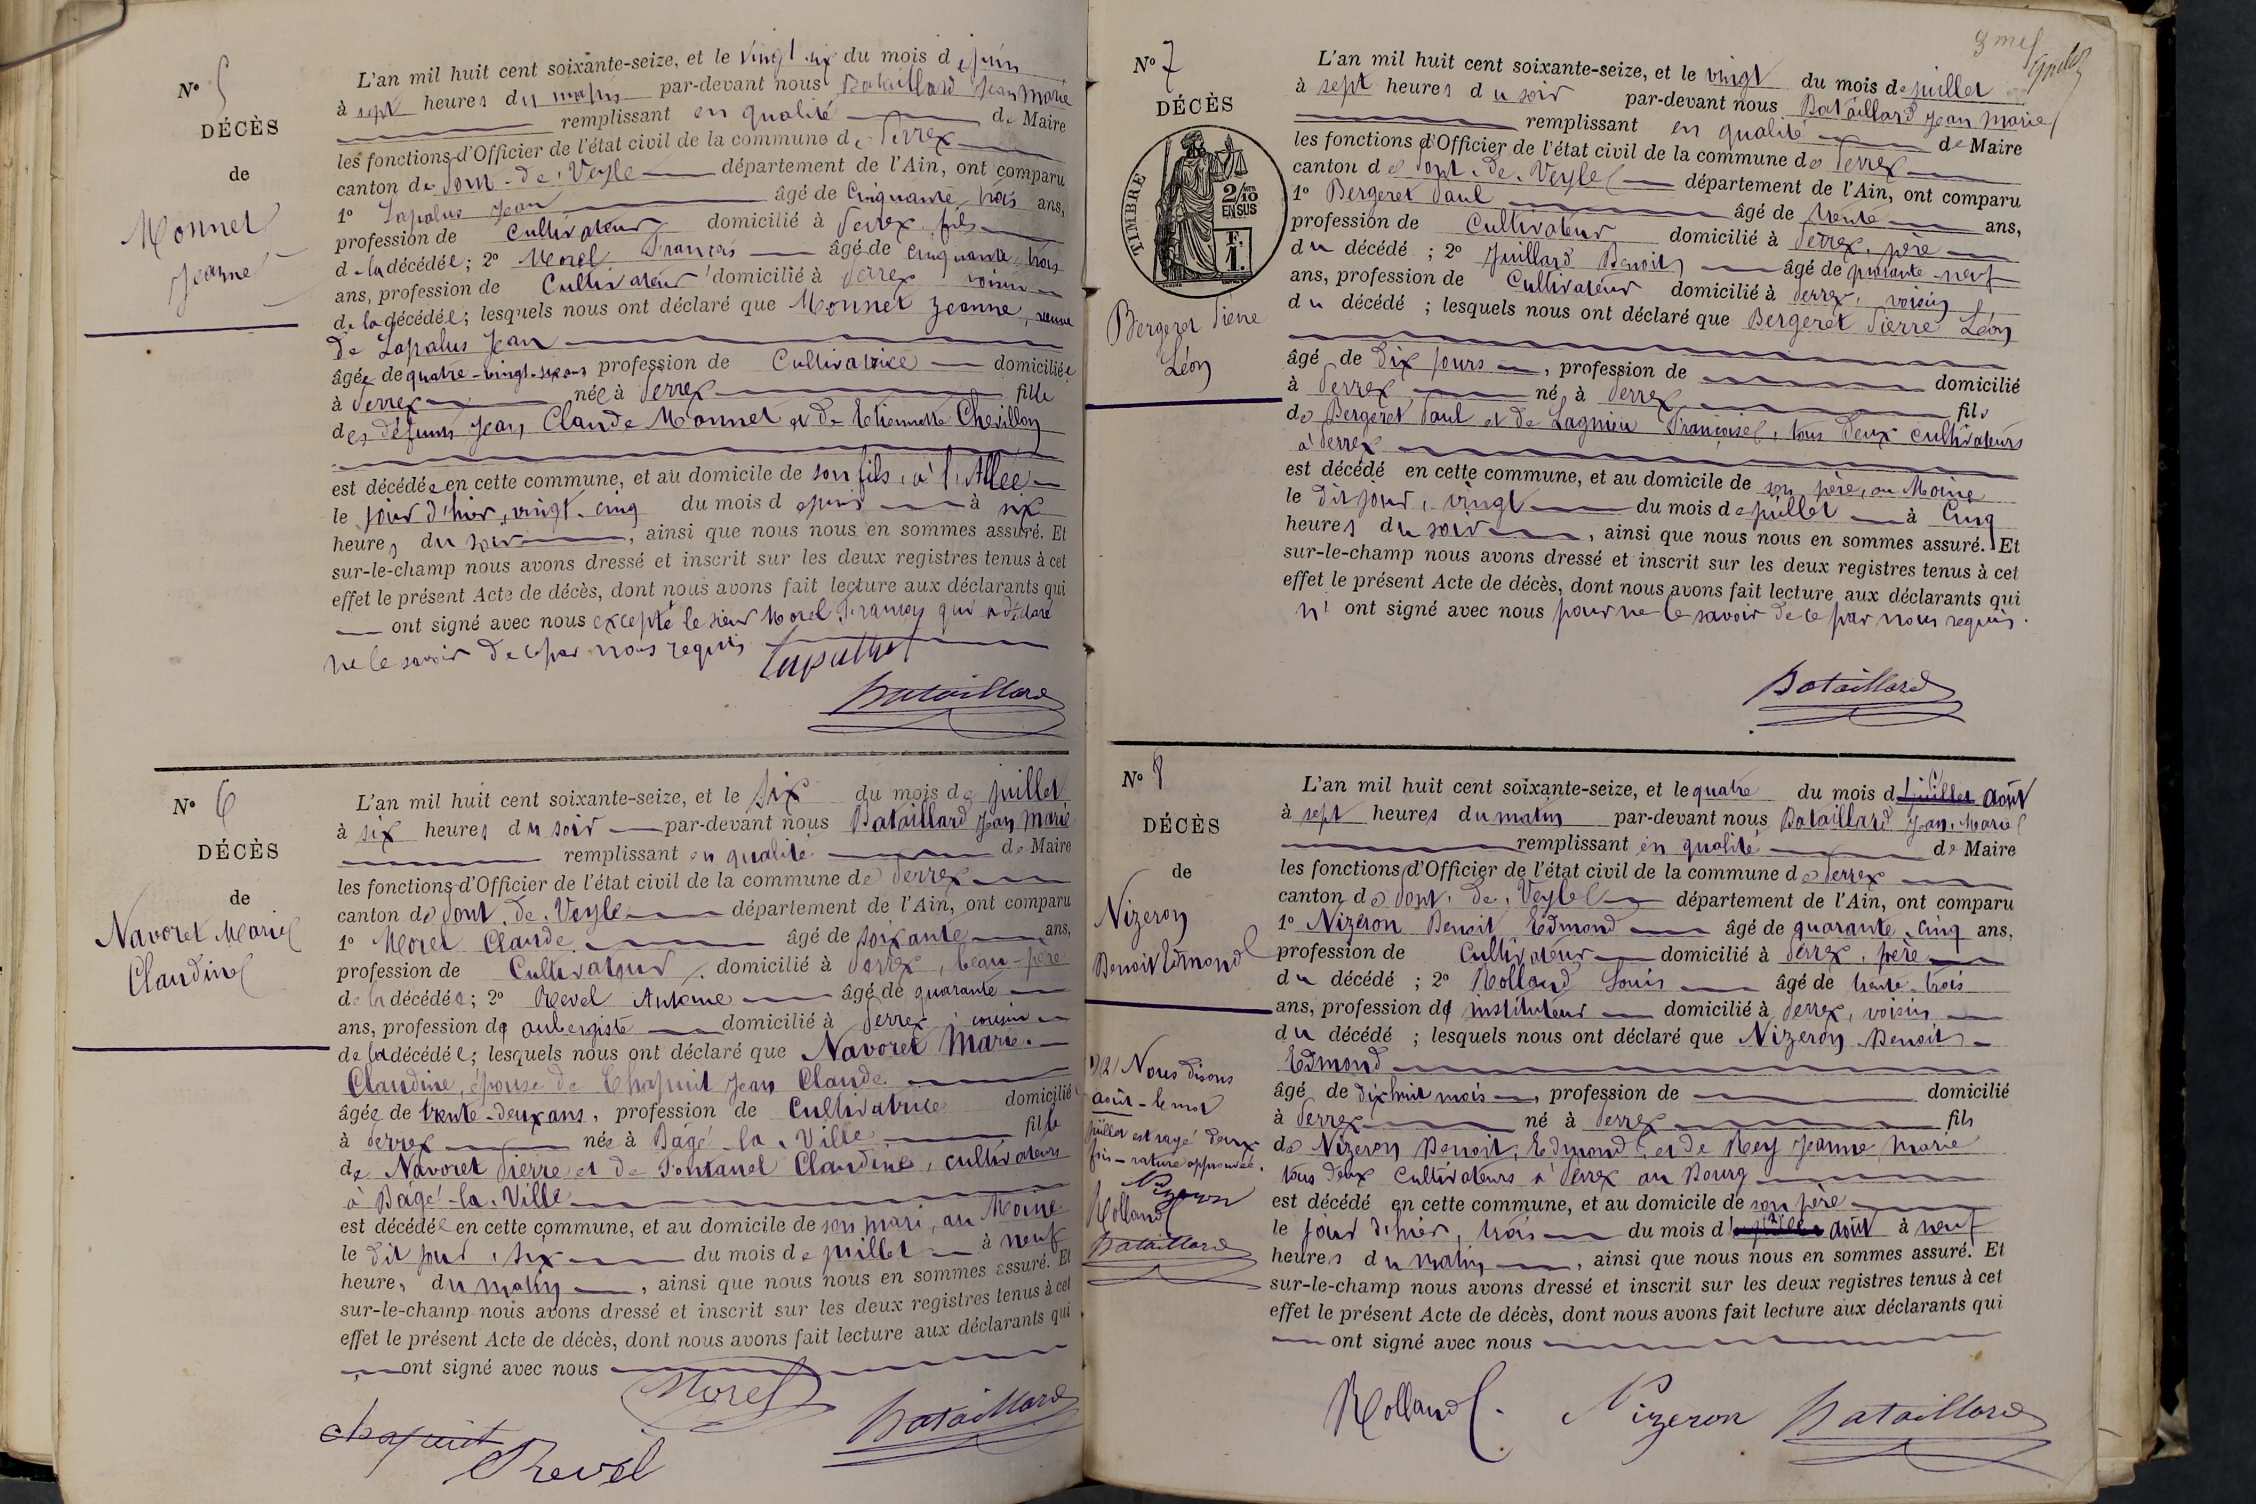 N° 5
DÉCÈS
de
Monnet
Jeanne
L'an mil huit cent soixante-seize, et le vingt six du mois de juin
à sept heures du matin par-devant nous Bataillard Jean Marie
remplissant en qualité de Maire
les fonctions d'Officier de l'état civil de la commune de Perrex
canton de Pont-de-Veyle département de l'Ain, ont comparu
1° Lapalus Jean âgé de Cinquante trois ans,
profession de Cultivateur domicilié à Perrex, fils
de la décédée; 2° Morel François âgé de cinquante trois
ans, profession de Cultivateur domicilié à Perrex voisin
de la décédée; lesquels nous ont déclaré que Monnet Jeanne, veuve
De Lapalus Jean
âgée de quatre-vingt-six ans profession de Cultivatrice domiciliée
à Perrex née à Perrex fille
des défunts Jean Claude Monnet et de Etiennette Chevillon
est décédée en cette commune, et au domicile de son fils, à l'Allée
le jour d'hier, vingt-cinq du mois de juin à six
heures du soir, ainsi que nous nous en sommes assuré. Et
sur-le-champ nous avons dressé et inscrit sur les deux registres tenus à cet
effet le présent Acte de décès, dont nous avons fait lecture aux déclarants qui
ont signé avec nous excepté le sieur Morel François qui a déclaré
ne le savoir de ce par nous requis
Bataillard
N° 6
DÉCÈS
de
Navoret Marie
Claudine
L'an mil huit cent soixante-seize, et le Six du mois de juillet
à six heures du soir par-devant nous Bataillard Jean Marie
remplissant en qualité de Maire
les fonctions d'Officier de l'état civil de la commune de Perrex
canton de Pont-de-Veyle département de l'Ain, ont comparu
1° Morel Claude âgé de soixante ans,
profession de Cultivateur domicilié à Perrex, beau-père
de la décédée; 2° Revel Antoine âgé de quarante
ans, profession de aubergiste domicilié à Perrex, cousin
de la décédée; lesquels nous ont déclaré que Navoret Marie
Claudine, épouse de Chapuit Jean Claude
âgée de trente-deux ans, profession de Cultivatrice domiciliée
à Perrex née à Bâgé-la-Ville fille
de Navoret Pierre et de Pontanel Claudine, cultivateurs
à Bâgé-la-Ville
est décédée en cette commune, et au domicile de son mari, au Moine
le dit jour, six du mois de juillet à neuf
heures du matin, ainsi que nous nous en sommes assuré. Et
sur-le-champ nous avons dressé et inscrit sur les deux registres tenus à cet
effet le présent Acte de décès, dont nous avons fait lecture aux déclarants qui
ont signé avec nous
Morel
chapuit Revel Bataillard
N° 7
DÉCÈS
TIMBRE
2/10
EN SUS
F.
1.
Bergeret Pierre
Léon
L'an mil huit cent soixante-seize, et le vingt du mois de juillet
à sept heures du soir par-devant nous Bataillard Jean Marie
remplissant en qualité de Maire
les fonctions d'Officier de l'état civil de la commune de Perrex
canton de Pont-de-Veyle département de l'Ain, ont comparu
1° Bergeret Paul âgé de trente ans,
profession de Cultivateur domicilié à Perrex, père
du décédé; 2° Juillard Benoit âgé de quarante-neuf
ans, profession de Cultivateur domicilié à Perrex, voisin
du décédé; lesquels nous ont déclaré que Bergeret Pierre Léon
âgé de dix jours, profession de domicilié
à Perrex né à Perrex fils
de Bergeret Paul et de Lagnieu Françoise, tous deux cultivateurs
à Perrex
est décédé en cette commune, et au domicile de son père, au Moine
le dit jour, vingt du mois de juillet à Cinq
heures du soir, ainsi que nous nous en sommes assuré. Et
sur-le-champ nous avons dressé et inscrit sur les deux registres tenus à cet
effet le présent Acte de décès, dont nous avons fait lecture aux déclarants qui
n'ont signé avec nous pour ne le savoir de ce par nous requis.
Bataillard
N° 8
DÉCÈS
de
Nizeron
Benoit Edmond
Nous disons
août - le mot
juillet est rayé deux
fois - rature approuvée.
Nizeron
Rolland
Bataillard
L'an mil huit cent soixante-seize, et le quatre du mois d juillet août
à sept heures du matin par-devant nous Bataillard Jean Marie
remplissant en qualité de Maire
les fonctions d'Officier de l'état civil de la commune de Perrex
canton de Pont-de-Veyle département de l'Ain, ont comparu
1° Nizeron Benoit Edmond âgé de quarante-cinq ans,
profession de Cultivateur domicilié à Perrex, père
du décédé; 2° Rolland Louis âgé de trente-trois
ans, profession d' instituteur domicilié à Perrex, voisin
du décédé; lesquels nous ont déclaré que Nizeron Benoit
Edmond
âgé de dix huit mois, profession de domicilié
à Perrex né à Perrex fils
de Nizeron Benoit, Edmond et de Rey Jeanne Marie
tous deux Cultivateurs à Perrex au Bourg
est décédé en cette commune, et au domicile de son père
le jour d'hier, trois du mois d juillet août à neuf
heures du matin, ainsi que nous nous en sommes assuré. Et
sur-le-champ nous avons dressé et inscrit sur les deux registres tenus à cet
effet le présent Acte de décès, dont nous avons fait lecture aux déclarants qui
ont signé avec nous
Rolland Nizeron Bataillard